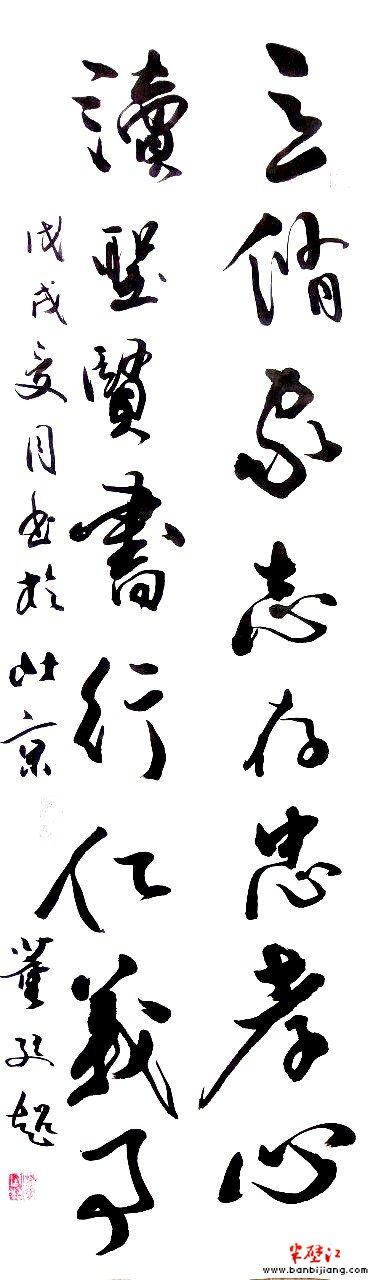 立脩家志存忠孝心
讀聖賢書行仁義事
戊戌夏月书於北京
董
半壁江
www.banbijiang.com